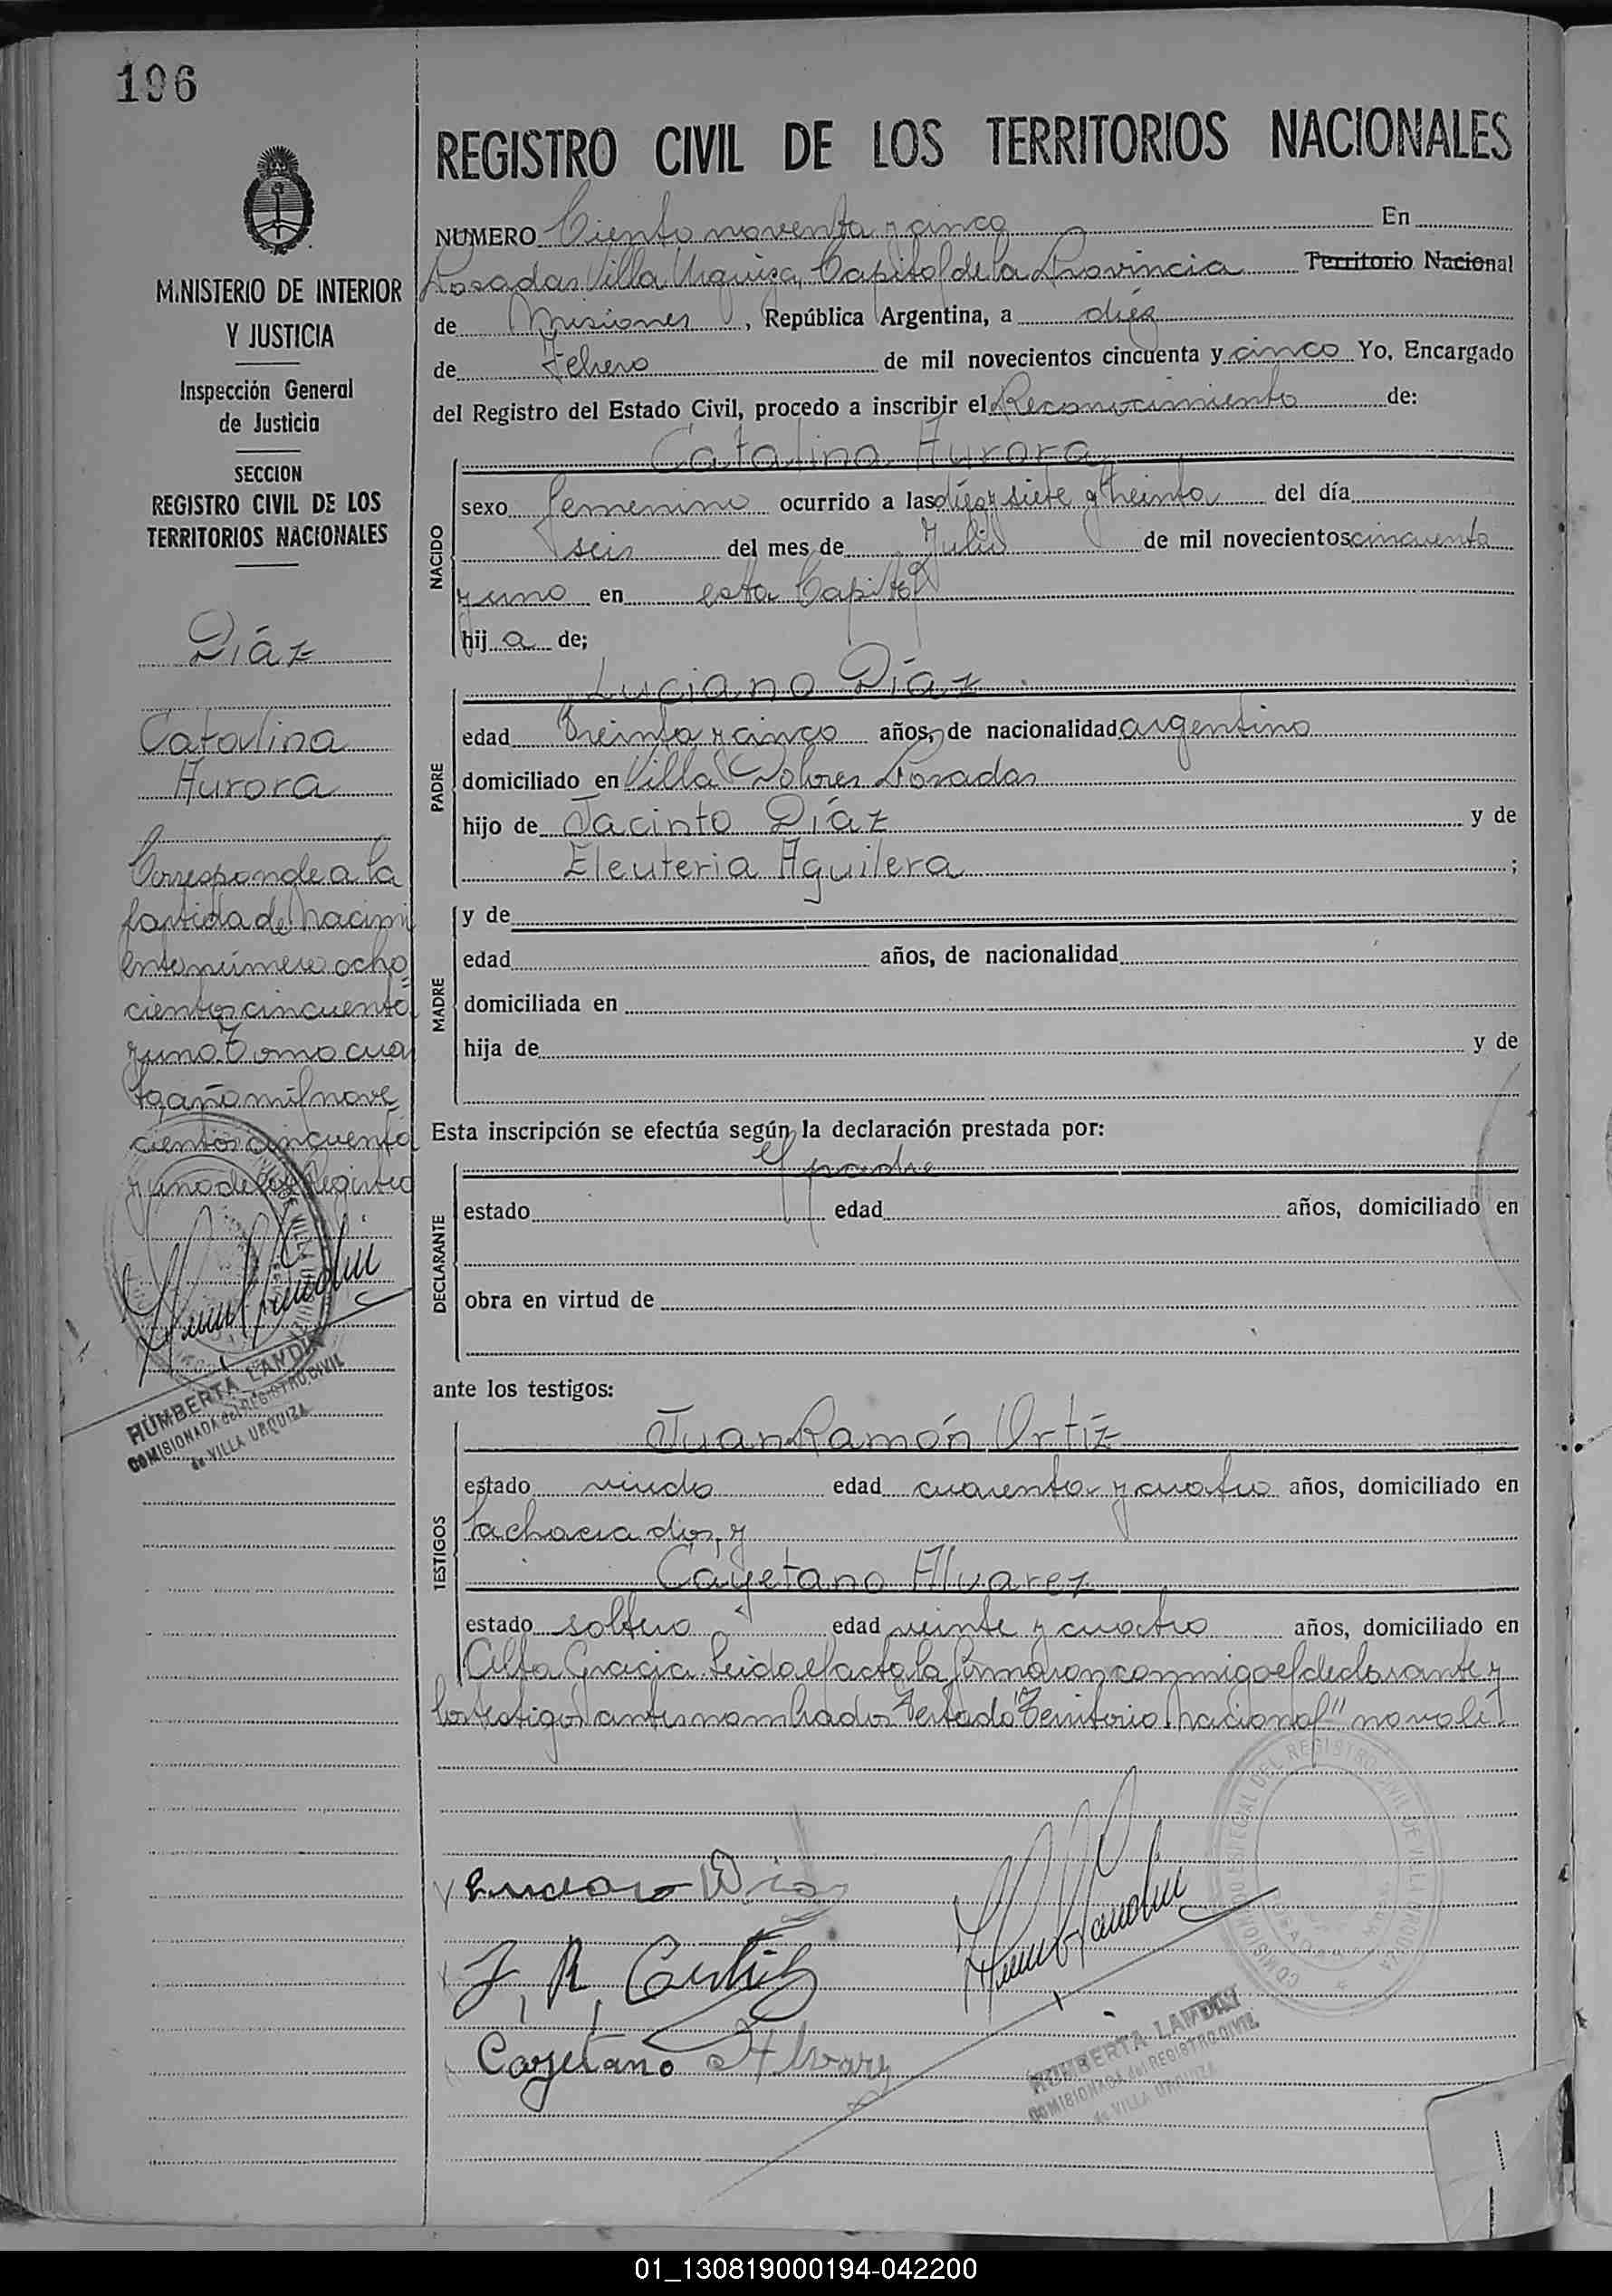 196
MINISTERIO DE INTERIOR
Y JUSTICIA
Inspección General
de Justicia
SECCION
REGISTRO CIVIL DE LOS
TERRITORIOS NACIONALES
Díaz
Catalina
Aurora
Corresponde a la
partida de nacimi
ento número ocho
cientos cincuenta
y uno. Tomo cua
to año mil nove
cientos cincuenta
y uno de este Registro
HUMBERTA LANDIN
COMISIONADA del REGISTRO CIVIL
de VILLA URQUIZA
REGISTRO CIVIL DE LOS TERRITORIOS NACIONALES
NUMERO Ciento noventa y cinco En
Posadas Villa Urquiza, Capital de la Provincia Territorio Nacional
de Misiones, República Argentina, a diéz
de Febrero de mil novecientos cincuenta y cinco Yo, Encargado
del Registro del Estado Civil, procedo a inscribir el Reconocimiento de:
Catalina Aurora
NACIDO
sexo femenino ocurrido a las diéz y siete y treinta del día
seis del mes de Julio de mil novecientos cincuenta
y uno en esta Capital
hija de;
Luciano Díaz
PADRE
edad Treinta y cinco años, de nacionalidad argentino
domiciliado en Villa Dolores Posadas
hijo de Jacinto Díaz y de
Eleuteria Aguilera;
MADRE
y de
edad años, de nacionalidad
domiciliada en
hija de y de
Esta inscripción se efectúa según la declaración prestada por:
El padre
DECLARANTE
estado edad años, domiciliado en
obra en virtud de
ante los testigos:
Juan Ramón Ortíz
TESTIGOS
estado viudo edad cuarenta y cuatro años, domiciliado en
la chacra dos, y
Cayetano Alvarez
estado soltero edad veinte y cuatro años, domiciliado en
Alta Gracia. Leida el acta la firmaron conmigo el declarante y
los testigos antes nombrados Testado "Territorio Nacional" no vale.
COMISIONADO ESPECIAL DEL REGISTRO CIVIL DE VILLA URQUIZA
Luciano Díaz
J. R. Ortiz
Cayetano Alvarez
HUMBERTA LANDIN
COMISIONADA del REGISTRO CIVIL
de VILLA URQUIZA
01_130819000194-042200